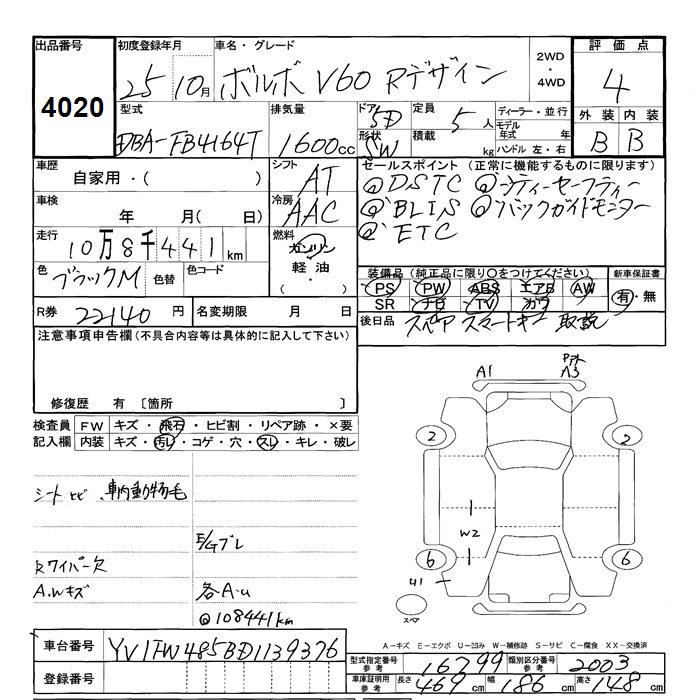 出品番号
4020
初度登録年月
25 10月
車名・グレード
ボルボ V60 Rデザイン
2WD
・
4WD
評価点
4
外装 内装
B B
型式
DBA-FB4164T
排気量
1600cc
ドア 5D
形状 SW
定員 5人
積載 kg
ディーラー・並行
モデル年式 年
ハンドル 左・右
車歴
自家用・( )
シフト
AT
車検
年 月( 日)
冷房
AAC
走行
10万8千441km
燃料
ガソリン
軽油
・
色
ブラックM
色替
色コード
セールスポイント (正常に機能するものに限ります)
@DSTC @シティーセーフティー
@BLIS @バックガイドモニター
@ETC
装備品 (純正品に限り○をつけてください)
PS PW ABS エアB AW
SR ナビ TV カワ
新車保証書
有・無
R券 22140円
名変期限 月 日
後日品 スペア スマートキー 取説
注意事項申告欄 (不具合内容等は具体的に記入して下さい)
修復歴 有 〔箇所 〕
検査員記入欄
FW キズ・飛石・ヒビ割・リペア跡・×要
内装 キズ・汚レ・コゲ・穴・スレ・キレ・破レ
シートヒビ、車内動物毛
E/Gブレ
Rワイパー欠
A.Wキズ
各A-u
@108441km
A1
A3
2
2
W2
6
6
U1
スペア
A－キズ E－エクボ U－凹み W－補修跡 S－サビ C－腐食 XX－交換済
車台番号 YV1FW485BD1139376
登録番号
型式指定番号 参考 16799
類別区分番号 参考 2003
車庫証明用 参考 長さ 469cm 幅 186cm 高さ 148cm